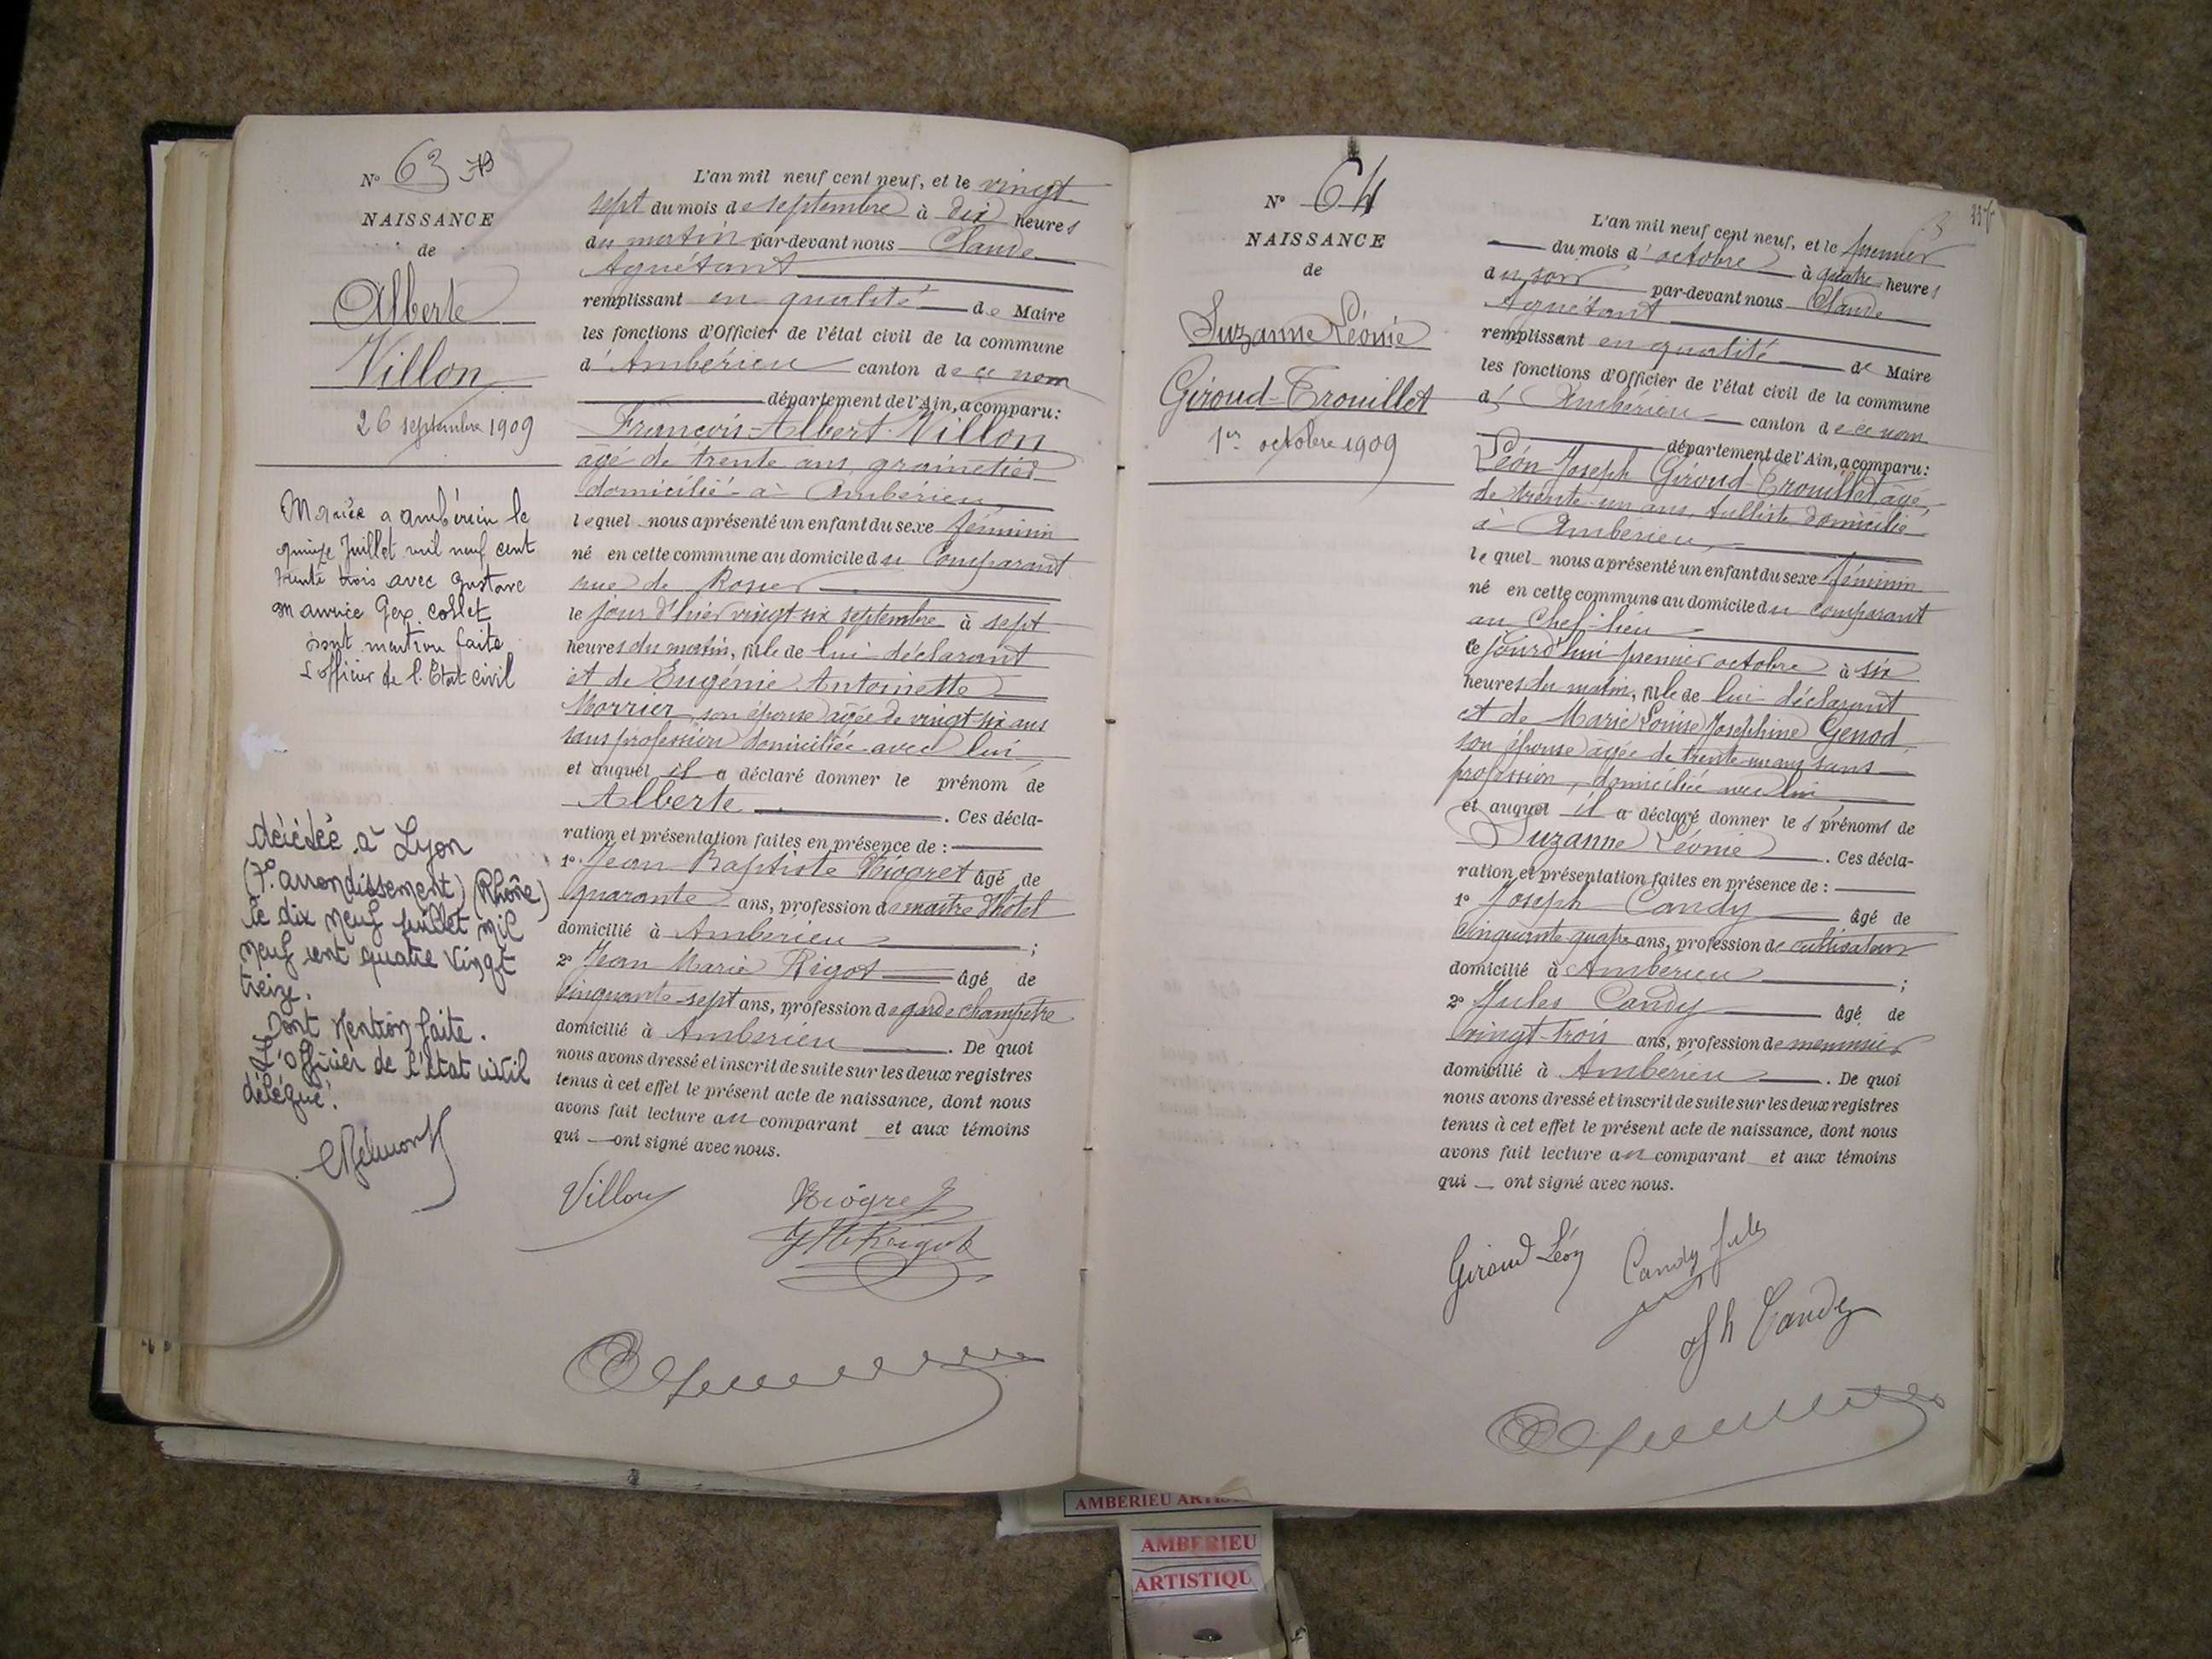 N° 63
NAISSANCE
de
Alberte
Villon
26 septembre 1909
Mariée a ambérieu le
quinze Juillet mil neuf cent
trente trois avec Gustave
Maurice Gex. Collet
dont mention faite
L'officier de l'Etat civil
décédée à Lyon
(7e arrondissement) (Rhône)
le dix neuf juillet mil
neuf cent quatre vingt
treize.
Dont Mention faite.
L'Officier de l'état civil
délégué.
L'an mil neuf cent neuf, et le vingt
sept du mois de septembre à dix heures
du matin par-devant nous Claude
Aguétant
remplissant en qualité de Maire
les fonctions d'Officier de l'état civil de la commune
d'Ambérieu canton de ce nom
département de l'Ain, a comparu:
François-Albert Villon
âgé de trente ans, grainetier
domicilié à Ambérieu
lequel nous a présenté un enfant du sexe féminin
né en cette commune au domicile du Comparant
rue de
le jour d'hier vingt-six septembre à sept
heures du matin, fille de lui déclarant
et de Eugénie Antoinette
Morrier son épouse âgée de vingt-six ans
sans profession domiciliée avec lui
et auquel il a déclaré donner le prénom de
Alberte . Ces décla-
ration et présentation faites en présence de :
1° Jean Baptiste Niogret âgé de
quarante ans, profession de maître d'hôtel
domicilié à Ambérieu ;
2° Jean Marie Rigot âgé de
cinquante-sept ans, profession de garde champêtre
domicilié à Ambérieu . De quoi
nous avons dressé et inscrit de suite sur les deux registres
tenus à cet effet le présent acte de naissance, dont nous
avons fait lecture au comparant et aux témoins
qui ont signé avec nous.
Villon Niogret
JM Rigot
N° 64
NAISSANCE
de
Suzanne Léonie
Giroud-Trouillet
1er octobre 1909
L'an mil neuf cent neuf, et le premier
du mois d'octobre à quatre heures
du soir par-devant nous Claude
Aguétant
remplissant en qualité de Maire
les fonctions d'Officier de l'état civil de la commune
d'Ambérieu canton de ce nom
département de l'Ain, a comparu:
Léon-Joseph Giroud-Trouillet âgé
de trente-un ans, tulliste domicilié
à Ambérieu,
lequel nous a présenté un enfant du sexe féminin
né en cette commune au domicile du comparant
au Chef-lieu
ce jourd'hui premier octobre à six
heures du matin, fille de lui déclarant
et de Marie Louise Joséphine Genod
son épouse âgée de trente-un ans sans
profession, domiciliée avec lui
et auquel il a déclaré donner les prénoms de
Suzanne Léonie . Ces décla-
ration et présentation faites en présence de :
1° Joseph Candy âgé de
cinquante-quatre ans, profession de cultivateur
domicilié à Ambérieu ;
2° Jules Candy âgé de
vingt-trois ans, profession de menuisier
domicilié à Ambérieu . De quoi
nous avons dressé et inscrit de suite sur les deux registres
tenus à cet effet le présent acte de naissance, dont nous
avons fait lecture au comparant et aux témoins
qui ont signé avec nous.
Giroud Léon Candy Jules
Jh Candy
AMBERIEU
AMBERIEU
ARTISTIQU